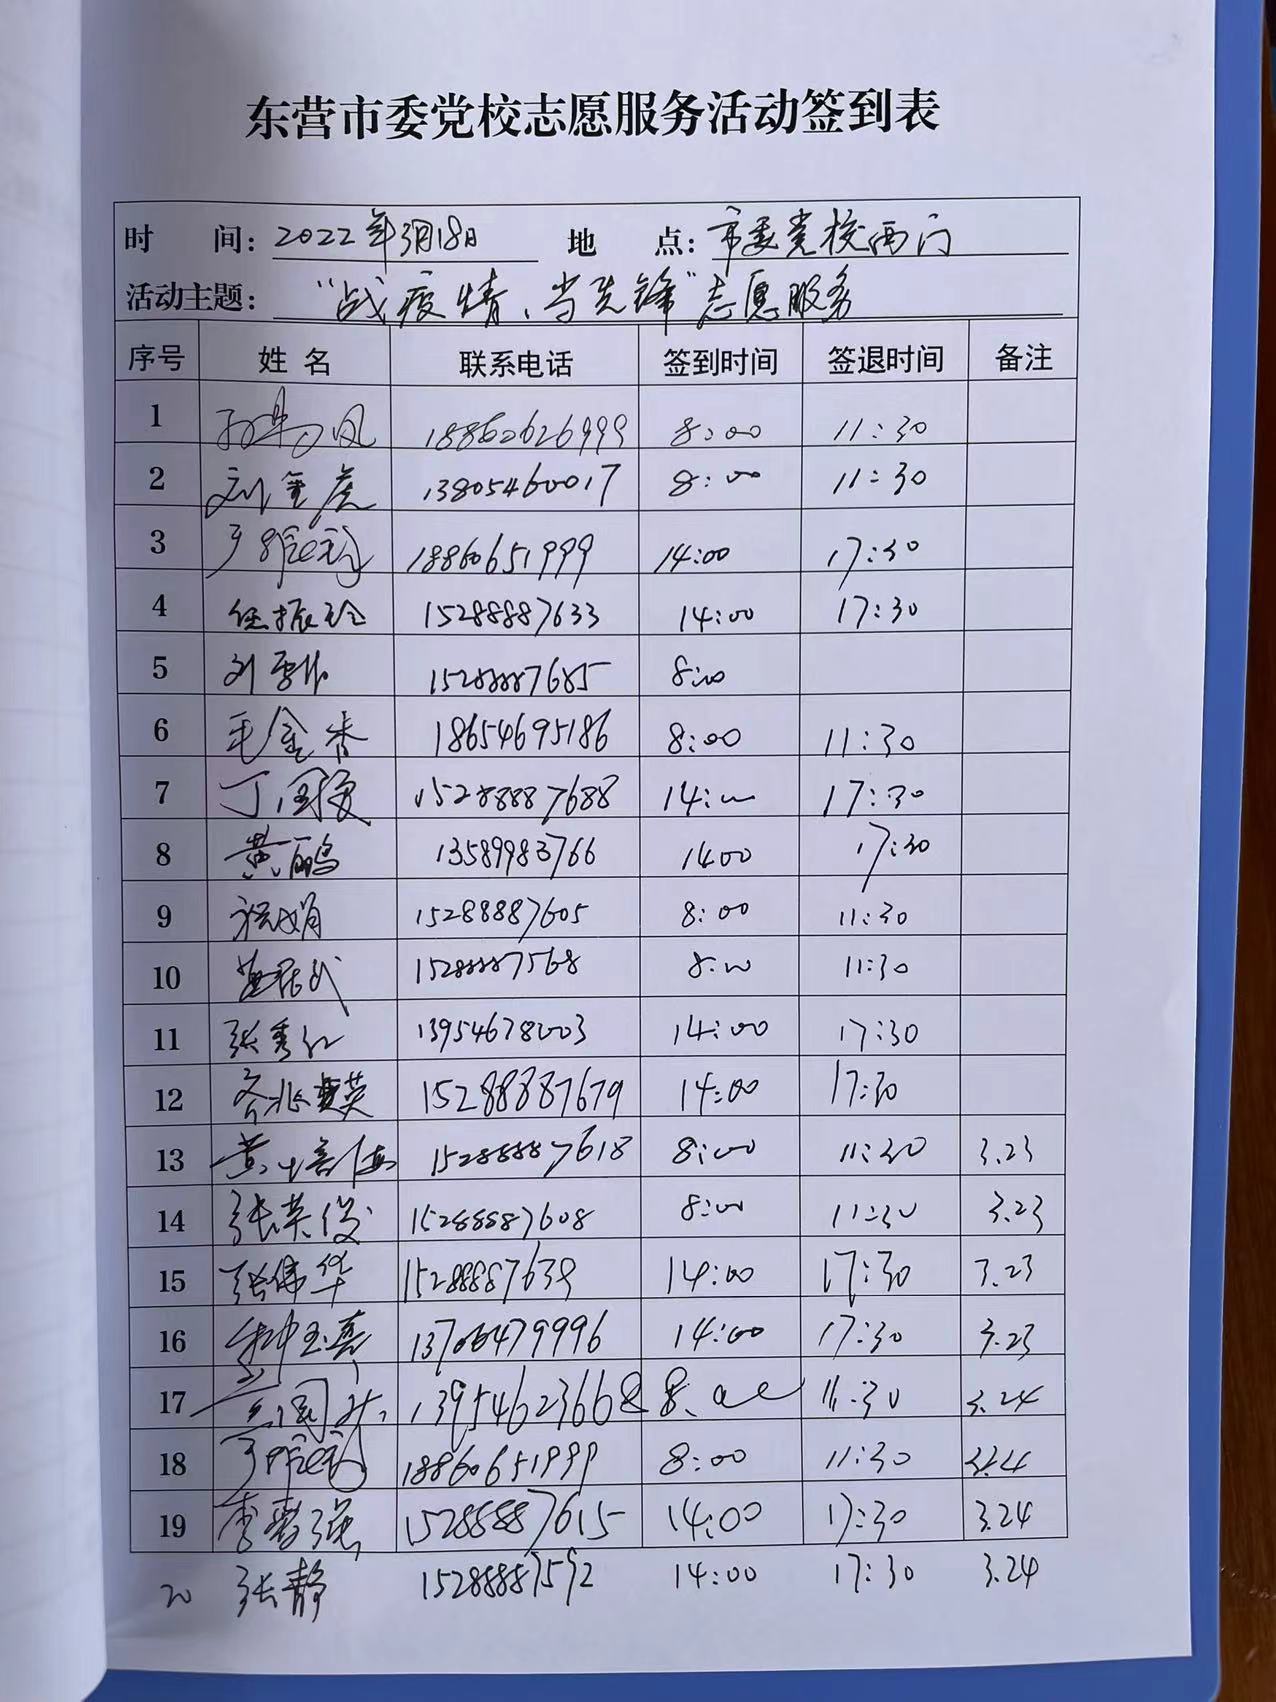 东营市委党校志愿服务活动签到表
时 间: 2022年3月18日 地 点: 市委党校西门
活动主题: “战疫情、当先锋”志愿服务
序号 姓名 联系电话 签到时间 签退时间 备注
1 18862626999 8:00 11:30
2 刘金虎 13805460017 8:00 11:30
3 18860651999 14:00 17:30
4 任振玲 15288887633 14:00 17:30
5 15288887685 8:00
6 毛金香 18654695186 8:00 11:30
7 丁国爱 15288887688 14:00 17:30
8 黄丽鸣 13589983766 14:00 17:30
9 娟 15288887605 8:00 11:30
10 15288887568 8:00 11:30
11 张秀红 13954678003 14:00 17:30
12 齐兆英 15288887679 14:00 17:30
13 黄培海 15288887618 8:00 11:30 3.23
14 张英俊 15288887608 8:00 11:30 3.23
15 张伟华 15288887639 14:00 17:30 3.23
16 13706479996 14:00 17:30 3.23
17 13954623668 8:00 11:30 3.24
18 18860651999 8:00 11:30
19 李强 15288887615 14:00 17:30 3.24
20 张静 15288887592 14:00 17:30 3.24